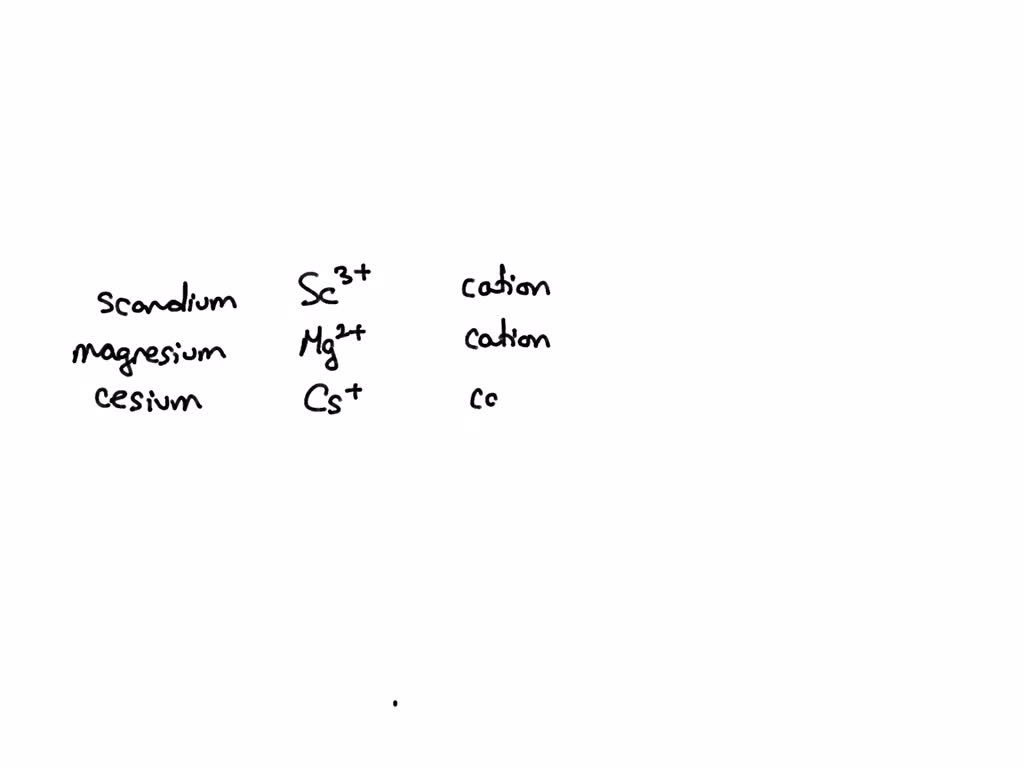 scandium Sc³⁺ cation
magnesium Mg²⁺ cation
cesium Cs⁺ ca